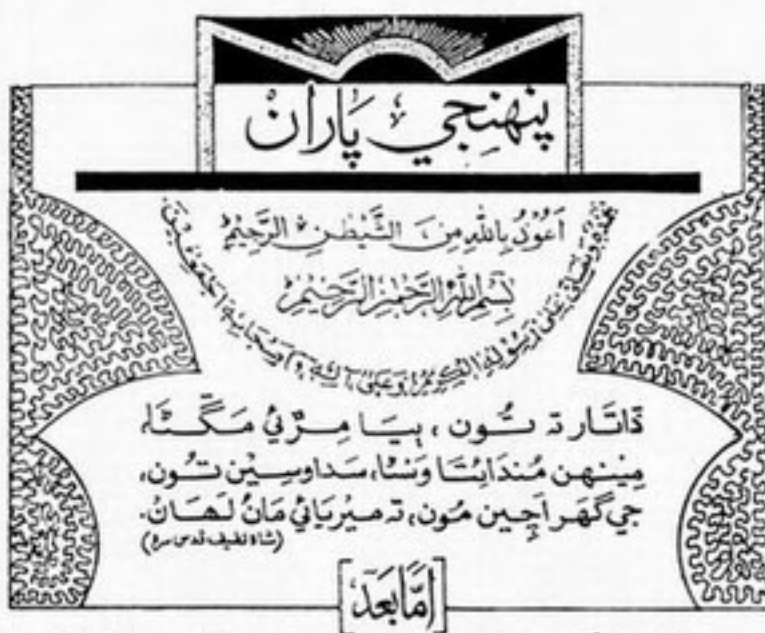 پنھنجي پاران
اَعُوْذُ بِاللّٰهِ مِنَ الشَّيْطٰنِ الرَّجِيْمِ
بِسْمِ اللّٰهِ الرَّحْمٰنِ الرَّحِيْمِ
نحمده ونصلي علىٰ رسوله الكريم وعلىٰ آله واصحابه اجمعين
ڏاتار تہ تُون، ٻيا مِڙئي مَڱڻا،
مِينهن مُندائتا وَسڻا، سدا وسين تون،
جي گهر اَچين مُون، تہ ميريائي مانُ لهان.
(شاه لطيف قدس سره)
[امّا بَعد]